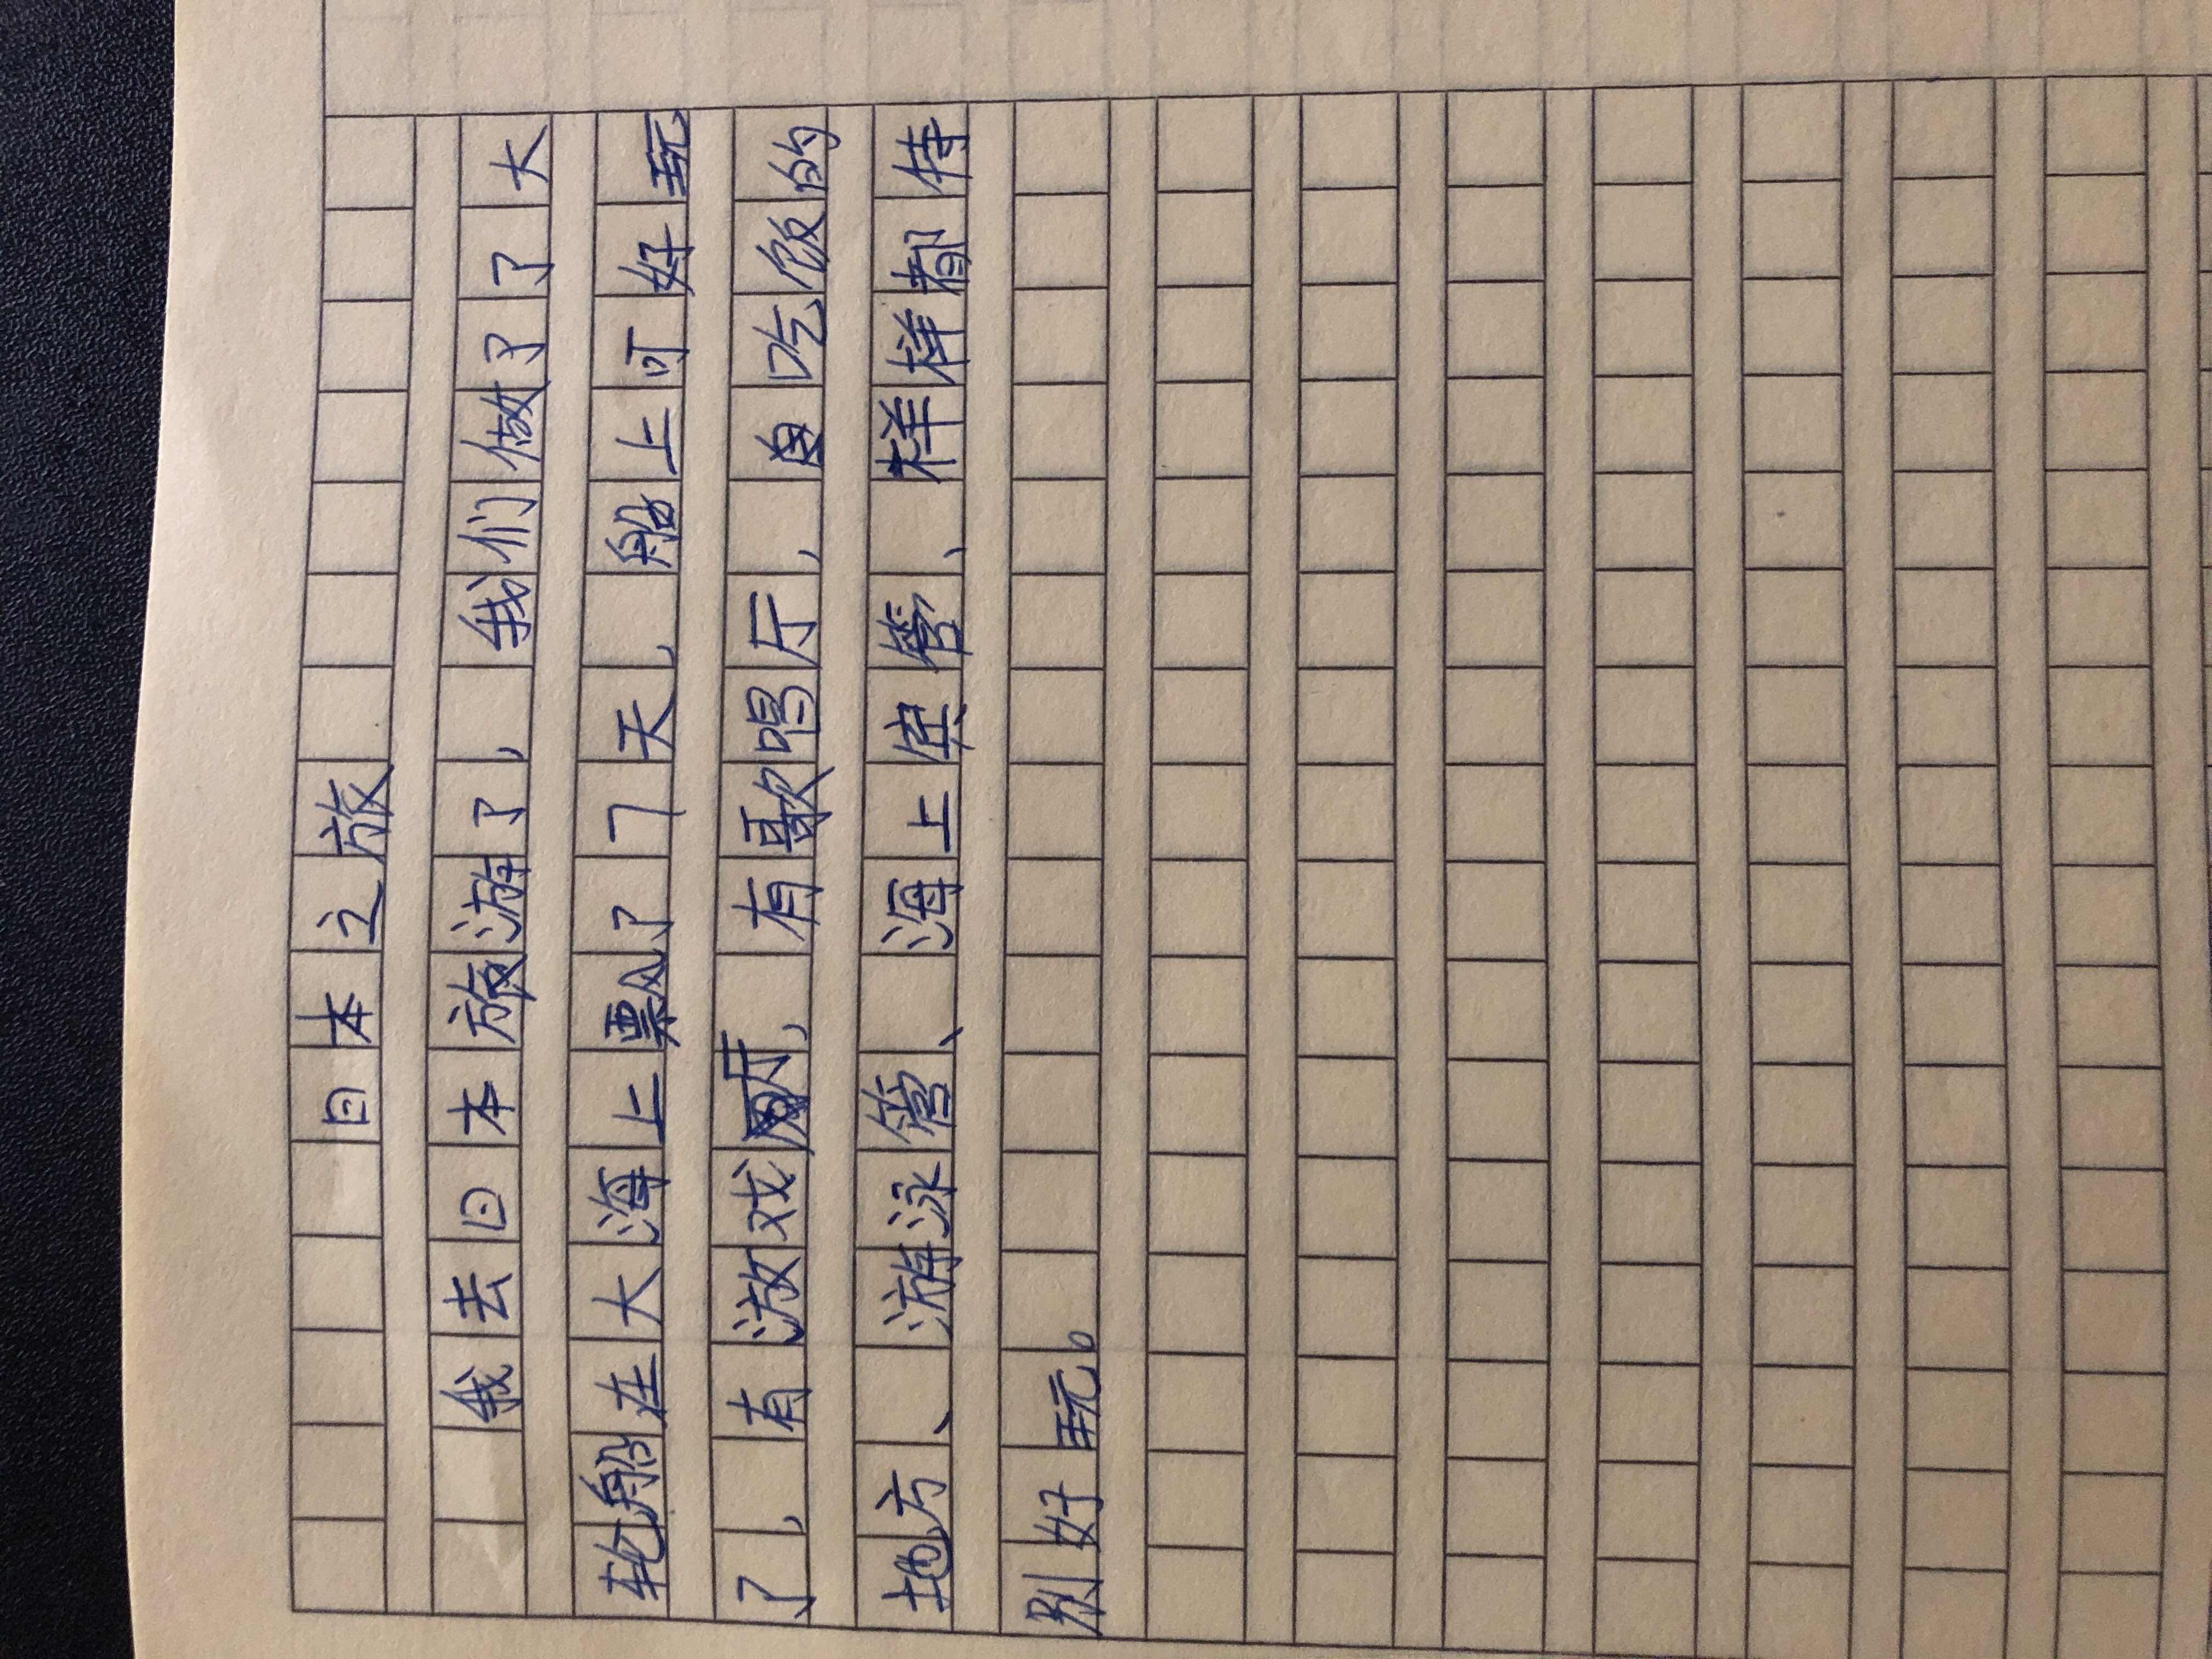 日本之旅
我去日本旅游了，我们做了了大
轮船在大海上飘了7天，船上可好玩
了，有游戏厅，有歌唱厅，吃饭的
地方、游泳管、海上管、样样都特
别好玩。